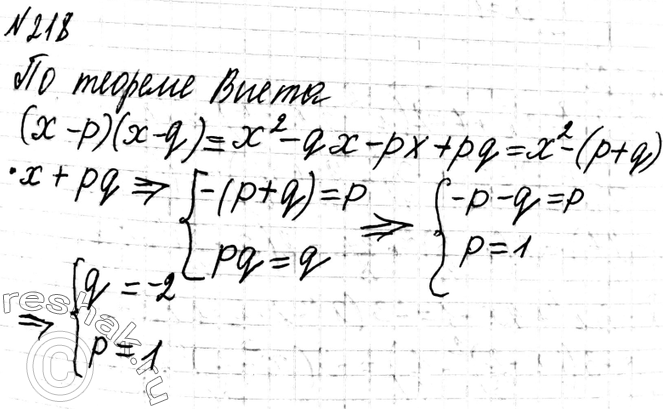 №218
По теореме Виета
(x-p)(x-q)=x²-qx-px+pq=x²-(p+q)
·x+pq ⇒ { -(p+q)=p ⇒ { -p-q=p
pq=q p=1
⇒ { q=-2
p=1
reshak.ru
©